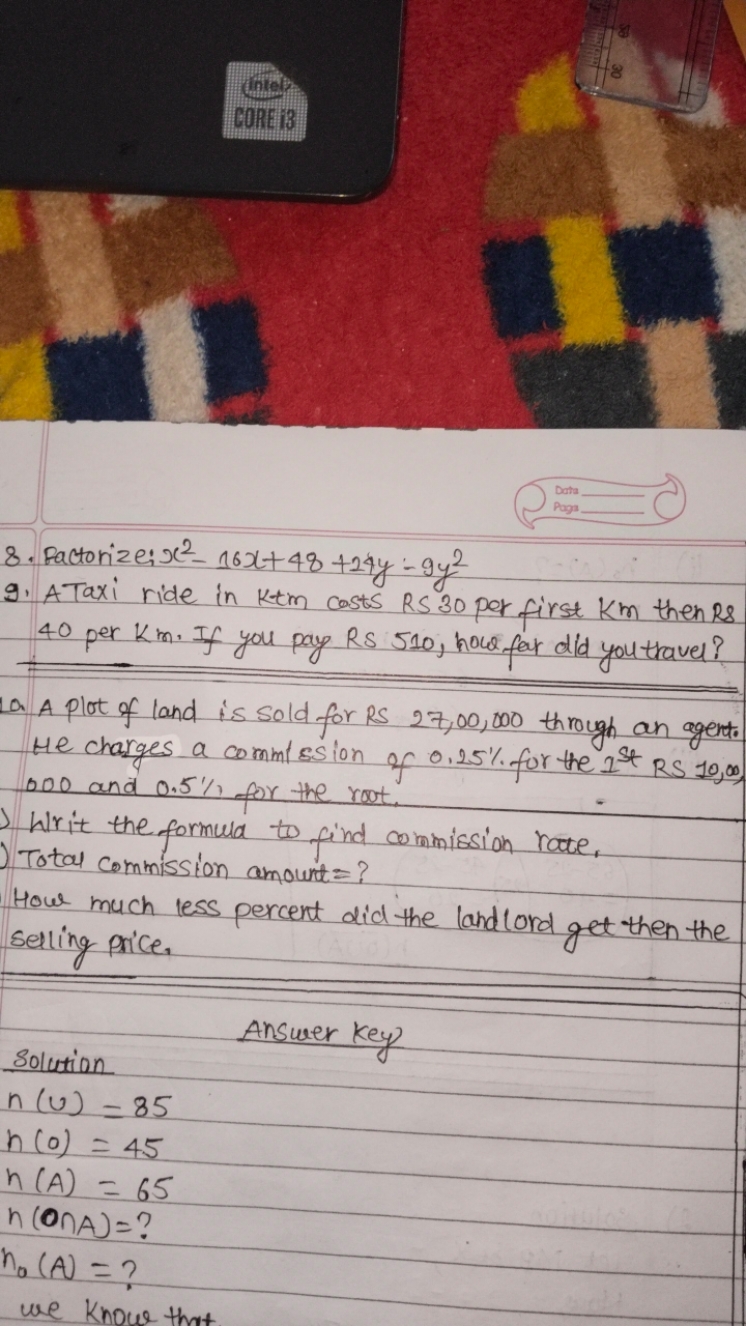 intel
CORE i3
30
Data
Page
8. Factorize: x² - 16x + 48 + 24y - 9y²
9. A Taxi ride in Ktm costs RS 30 per first Km then RS
40 per Km. If you pay RS 510, how far did you travel?
10. A plot of land is sold for RS 27,00,000 through an agent.
He charges a commission of 0.25% for the 1st RS 10,00,
000 and 0.5% for the root.
) Writ the formula to find commission rate.
) Total commission amount = ?
How much less percent did the landlord get then the
selling price.
Answer Key
Solution
n(U) = 85
n(O) = 45
n(A) = 65
n(O∩A) = ?
n₀(A) = ?
we know that